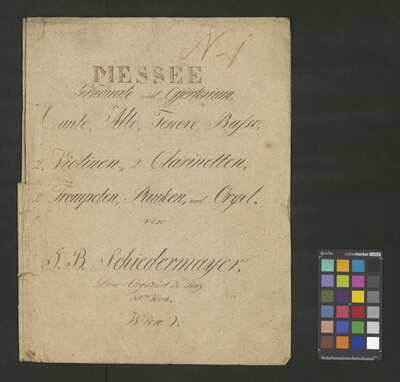 N-1
MESSEE
Graduale und Offertorium,
Canto, Alto, Tenore, Basso,
2 Violinen, 2 Clarinetten,
2 Trompeten, Pauken, und Orgel.
von
J. B. Schiedermayer.
Dom-Organist in Linz
Wien